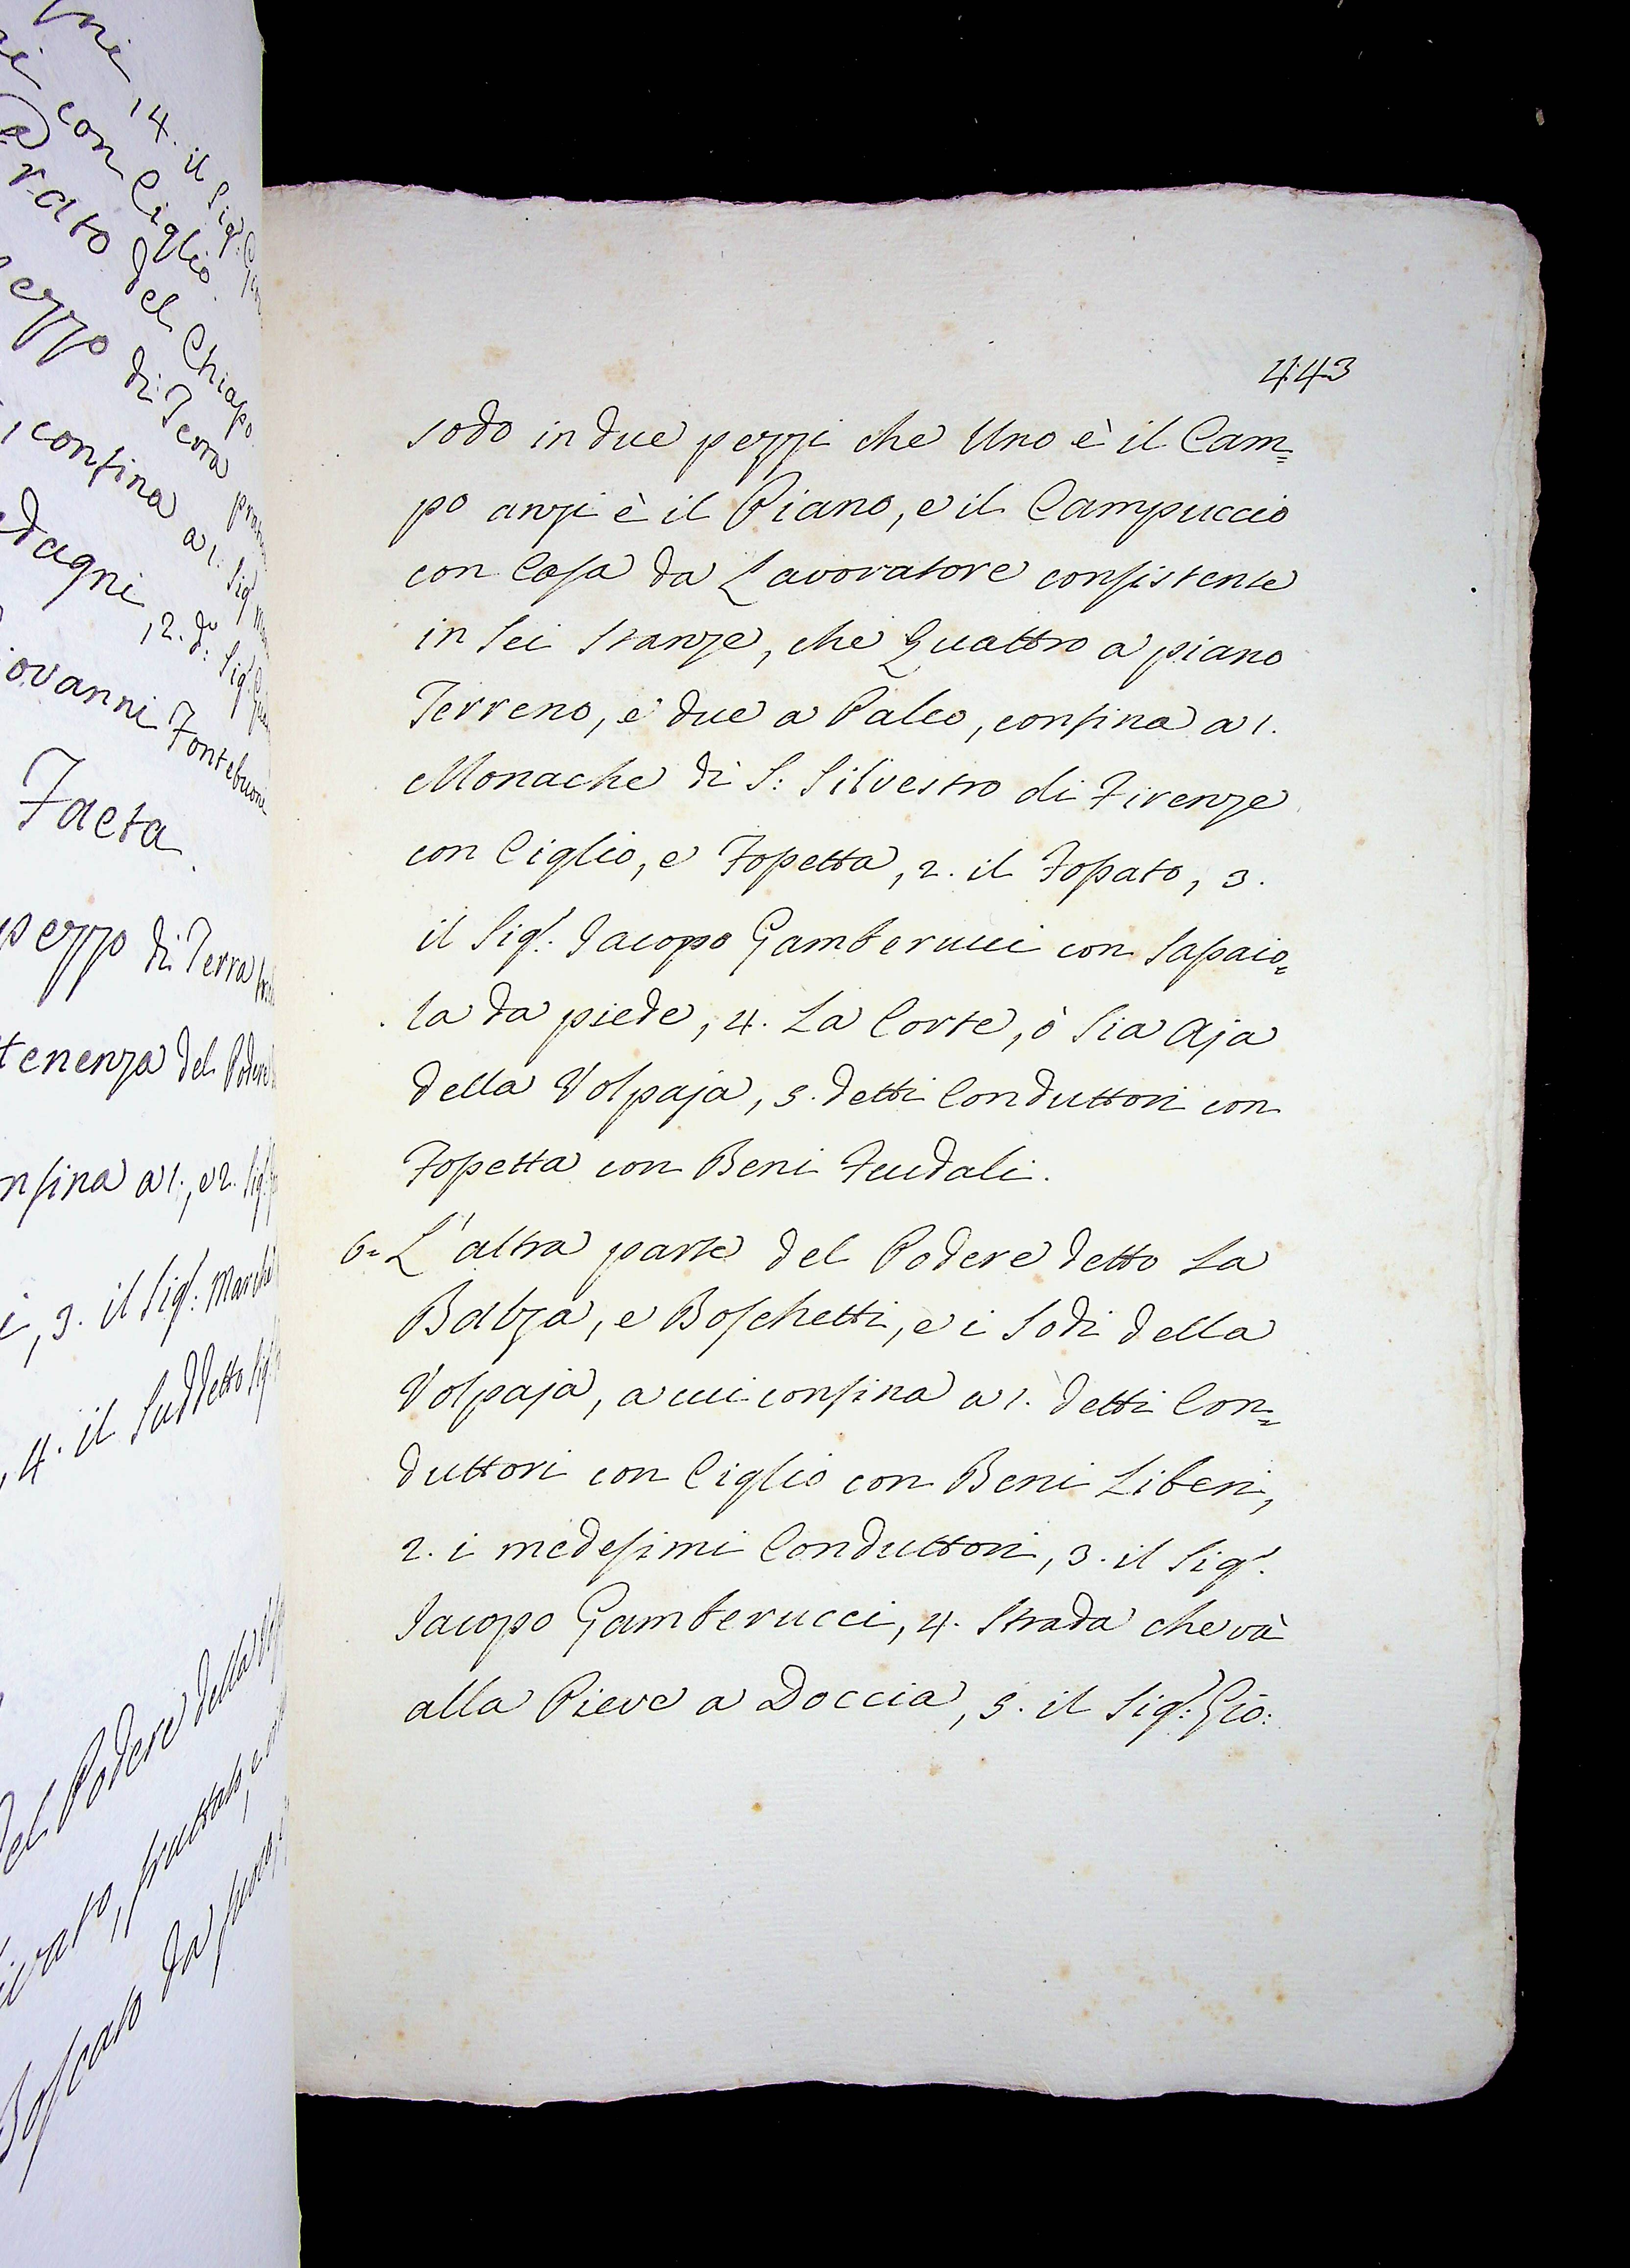 ni 14. il Sig.
con Ciglio.
Prato del Chiasso
pezzo di Terra
, confina a 1. Sig.
dagni, 2. do: Sig.
iovanni Fontebuoni
Faeta.
pezzo di Terra
tenenza del Podere
nfina a 1., e 2. Sig.
i, 3. il Sig.r: March
, 4. il Suddetto Sig.
del Podere della
ivato, fruttato, e
Boscato da fuoco,
443
sodo in due pezzi che Uno è il Cam=
po anzi è il Piano, e il Campuccio
con Casa da Lavoratore consistente
in Sei Stanze, che Quattro a piano
Terreno, e due a Palco, confina a 1.
Monache di S: Silvestro di Firenze
con Ciglio, e Fossetta, 2. il Fossato, 3.
il Sig.r: Jacopo Gamberucci con Sassaio=
la da piede, 4. La Corte, ò Sia Aja
della Volpaja, 5. detti Conduttori con
Fossetta con Beni Feudali.
6= L'altra parte del Podere detto La
Balza, e Boschetti, e i Sodi della
Volpaja, a cui confina a 1. detti Con=
duttori con Ciglio con Beni Liberi,
2. i medesimi Conduttori, 3. il Sig.r.
Jacopo Gamberucci, 4. Strada che và
alla Pieve a Doccia, 5. il Sig.r: Gio: